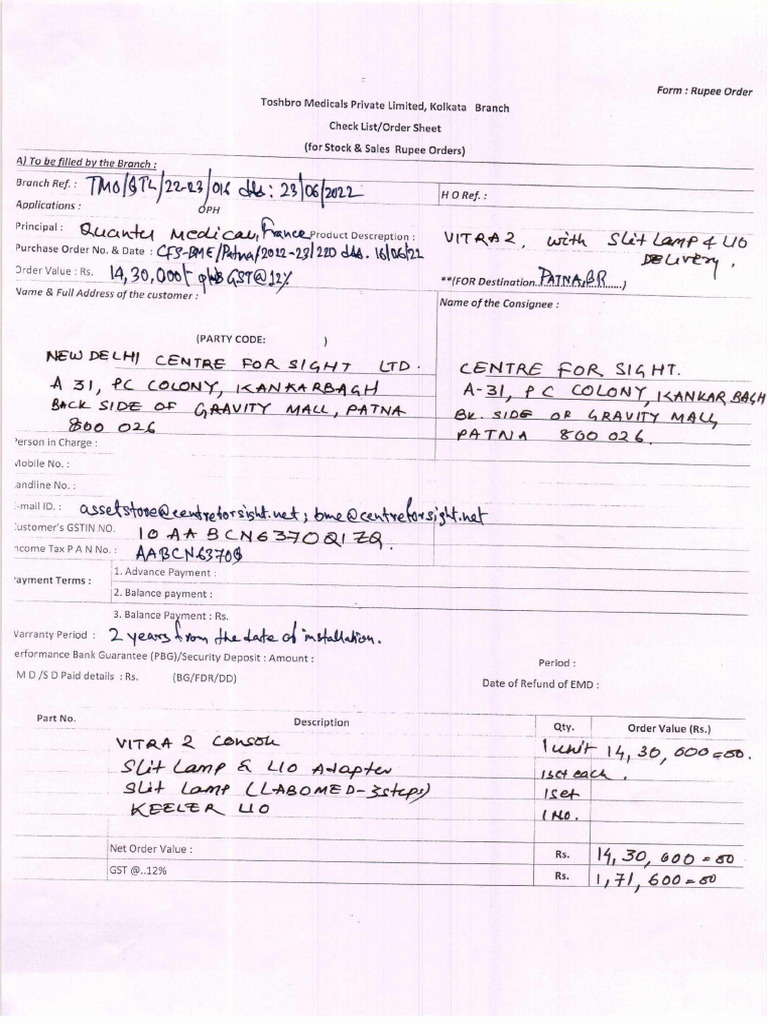 Form : Rupee Order
Toshbro Medicals Private Limited, Kolkata Branch
Check List/Order Sheet
(for Stock & Sales Rupee Orders)
A) To be filled by the Branch :
Branch Ref. : TMO/ /22-23/016 dtd: 23/06/2022 H O Ref. :
Applications : OPH
Principal : Quantel Medical, France Product Descreption : VITRA 2, with Slit Lamp & LIO
DELIVERY.
Purchase Order No. & Date : CFS-BME/Patna/2022-23/220 dtd. 16/06/22
Order Value : Rs. 14,30,000/- plus GST@12% **(FOR Destination..PATNA,BR......)
Name & Full Address of the customer : Name of the Consignee :
(PARTY CODE: )
NEW DELHI CENTRE FOR SIGHT LTD. CENTRE FOR SIGHT.
A 31, PC COLONY, KANKARBAGH A-31, P C COLONY, KANKARBAGH
BACK SIDE OF GRAVITY MALL, PATNA BK. SIDE OF GRAVITY MALL,
800 026 PATNA 800 026.
Person in Charge :
Mobile No. :
andline No. :
E-mail ID. : assetstore@centreforsight.net ; bme@centreforsight.net
Customer's GSTIN NO. 10 AA BCN6370Q1ZQ.
ncome Tax P A N No. : AABCN6370Q
ayment Terms : 1. Advance Payment :
2. Balance payment :
3. Balance Payment : Rs.
Warranty Period : 2 years from the date of installation.
erformance Bank Guarantee (PBG)/Security Deposit : Amount : Period :
M D /S D Paid details : Rs. (BG/FDR/DD) Date of Refund of EMD :
Part No. Description Qty. Order Value (Rs.)
VITRA 2 Console 1 unit 14, 30, 000=00.
Slit Lamp & LIO Adapter 1 set each.
Slit Lamp (LABOMED-3steps) 1 set
KEELER LIO 1 No.
Net Order Value : Rs. 14, 30, 000=00
GST @..12% Rs. 1,71, 600=00